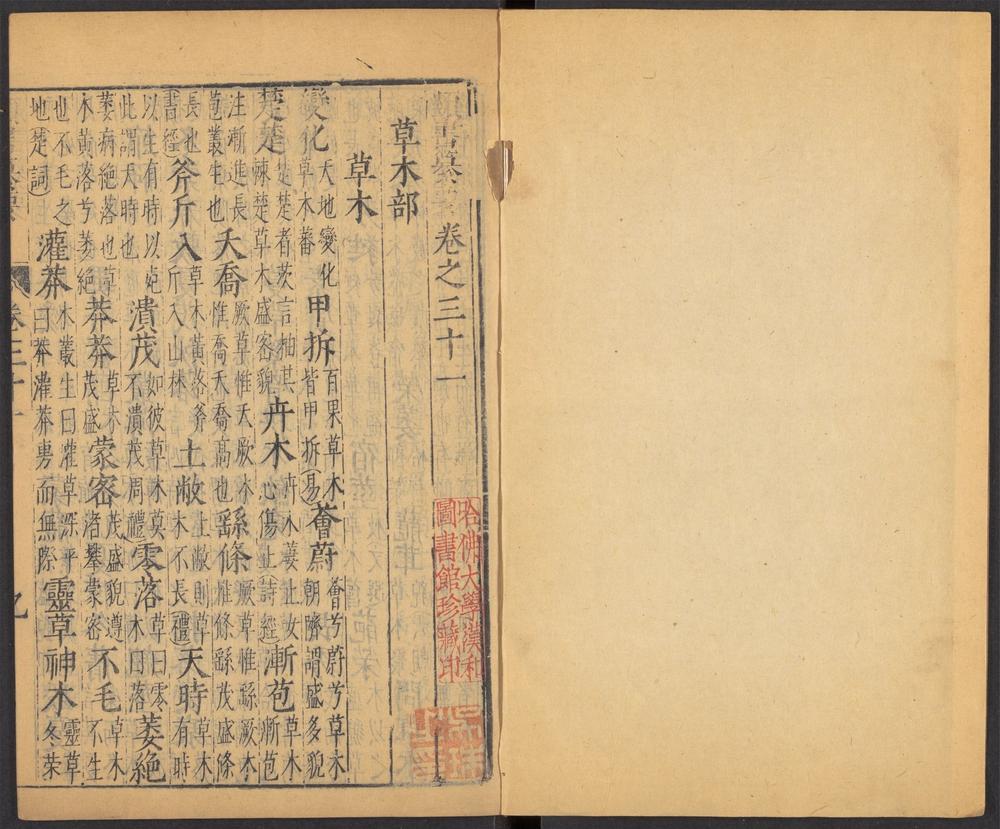 卷之三十一
草木部
草木
變化天地變化草木蕃甲拆百果草木皆甲拆易薈蔚薈兮蔚兮草木朝隮謂盛多貌
楚楚楚楚者茨言抽其楝楚草木盛密貌卉木卉木萋止女心傷止詩經漸苞草木漸苞
注漸進長苞叢生也夭喬厥草惟夭厥木惟喬夭喬高也繇條厥草惟繇厥木惟條繇茂盛條
長也書經斧斤入草木黃落斧斤入山林土敝土敝則草木不長禮天時草木有時
以生有時以死此謂天時也潰茂如彼草木莫不潰茂周禮零落草曰零木曰落萎絶
萎病絶落也草木黃落兮萎絶莽莽草木茂盛蒙密茂盛貌遵渚攀蒙密不毛草木不生
也不毛之地楚詞灌莽木叢生曰灌草深平曰莽灌莽勇而無際靈草神木靈草冬榮
哈佛大學漢和
圖書館珍藏印